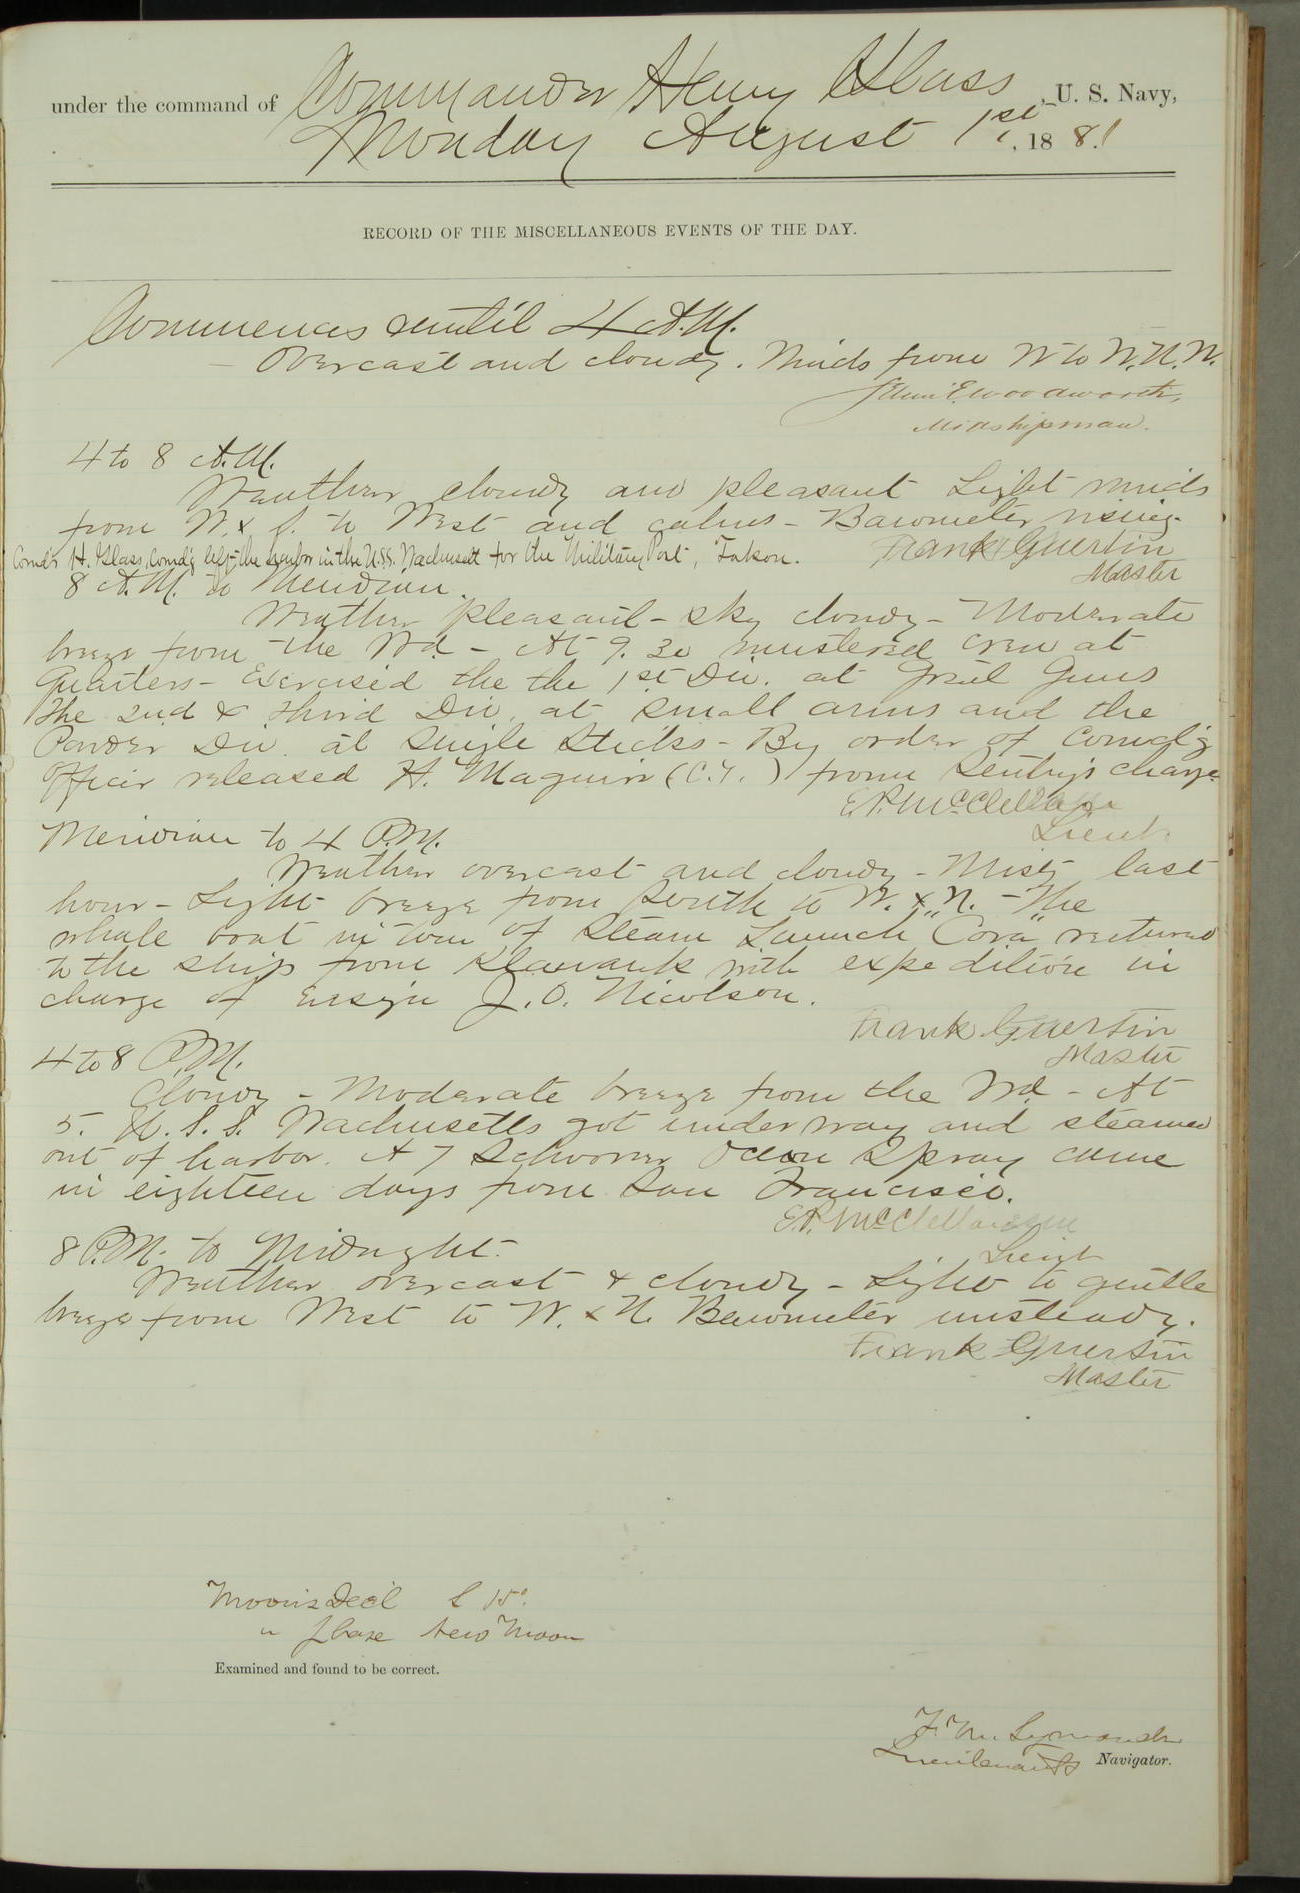 under the command of Commander Henry Glass, U. S. Navy,
Monday August 1st, 188.1
RECORD OF THE MISCELLANEOUS EVENTS OF THE DAY.
Commences until 4 A.M.
Overcast and cloudy. Winds from W to W.N.W.
Edwin E. Woodworth,
Midshipman.
4 to 8 A.M.
Weather cloudy and pleasant Light winds
from W. x S. to West and calms - Barometer rising.
Comd'r H. Glass, Comd'g left the harbor in the U.S.S. Wachusett for the Military Port, Tukson.
Frank Guertin
Master
8 A.M. to Meridian.
Weather pleasant - sky cloudy - Moderate
breeze from the Wd. - At 9.30 mustered crew at
Quarters - Exercised the the 1st Div. at Great Guns
the 2nd & third Div. at small arms and the
Powder Div. at Single Sticks - By order of Comd'g
Officer released H. Maguire (C.F.) from Sentry's charge
E.P. McClellan
Lieut.
Meridian to 4 P.M.
Weather overcast and cloudy - Misty last
hour - Light breeze from South to W. x N. - The
whale boat in tow of Steam Launch "Cora" returned
to the ship from Klawack with expedition in
charge of Ensign J. O. Nicolson.
Frank Guertin
Master
4 to 8 P.M.
Cloudy - Moderate breeze from the Wd. - At
5. U.S.S. Wachusetts got underway and steamed
out of harbor. At 7 Schooner Ocean Spray came
in eighteen days from San Francisco.
E.P. McClellan
Lieut
8 P.M. to Midnight.
Weather overcast & cloudy - Light to gentle
breeze from West to W. x N. Barometer unsteady.
Frank Guertin
Master
Moon's Decl S 15°.
" phase New Moon
Examined and found to be correct.
F. M. Symonds
Lieutenant & Navigator.